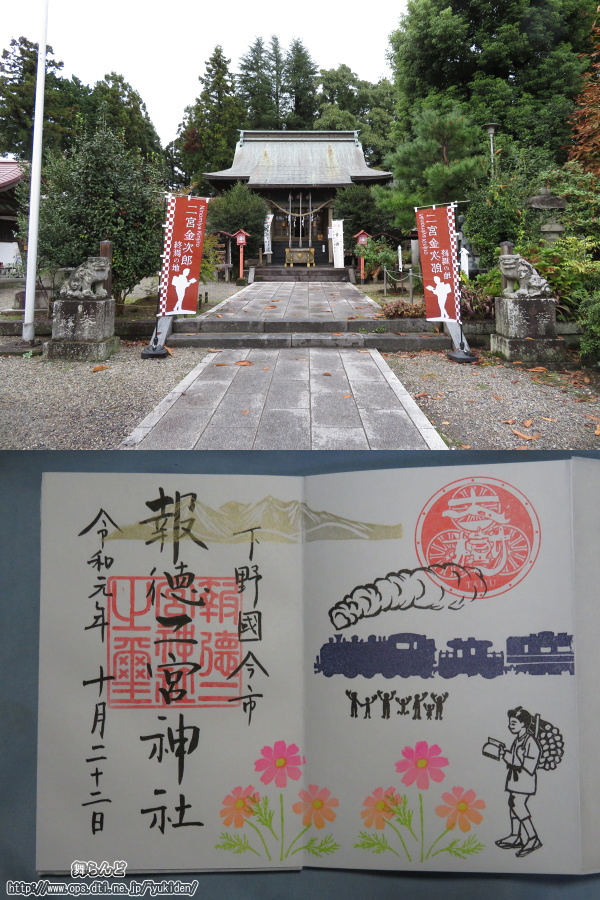 二宮金次郎
終焉の地
Ninomiya Kinjiro
二宮金次郎
終焉の地
下野國今市
報徳二宮神社
令和元年 十月二十二日
報徳二宮神社之璽
大樹
舞らんど
http://www.ops.dti.ne.jp/~yukiden/